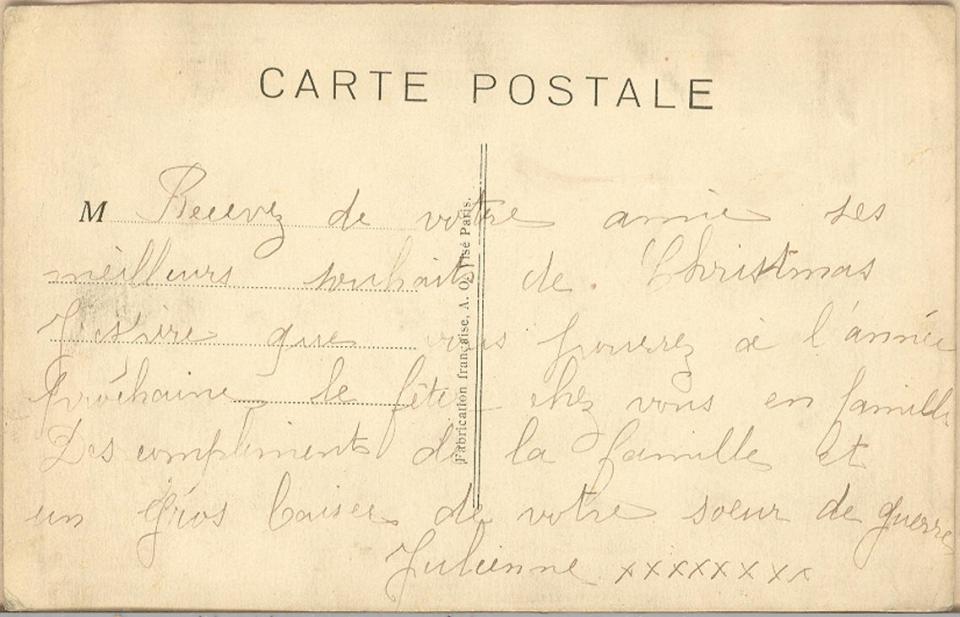 CARTE POSTALE
M Recevez de votre amie ses
meilleurs souhaits de Christmas
J'éspire que vous pourrez à l'année
prochaine le fêter chez vous en famille
Des compliments de la famille et
un gros baiser de votre soeur de guerre
Julienne xxxxxxxx
Fabrication française, A. O. Visé Paris.